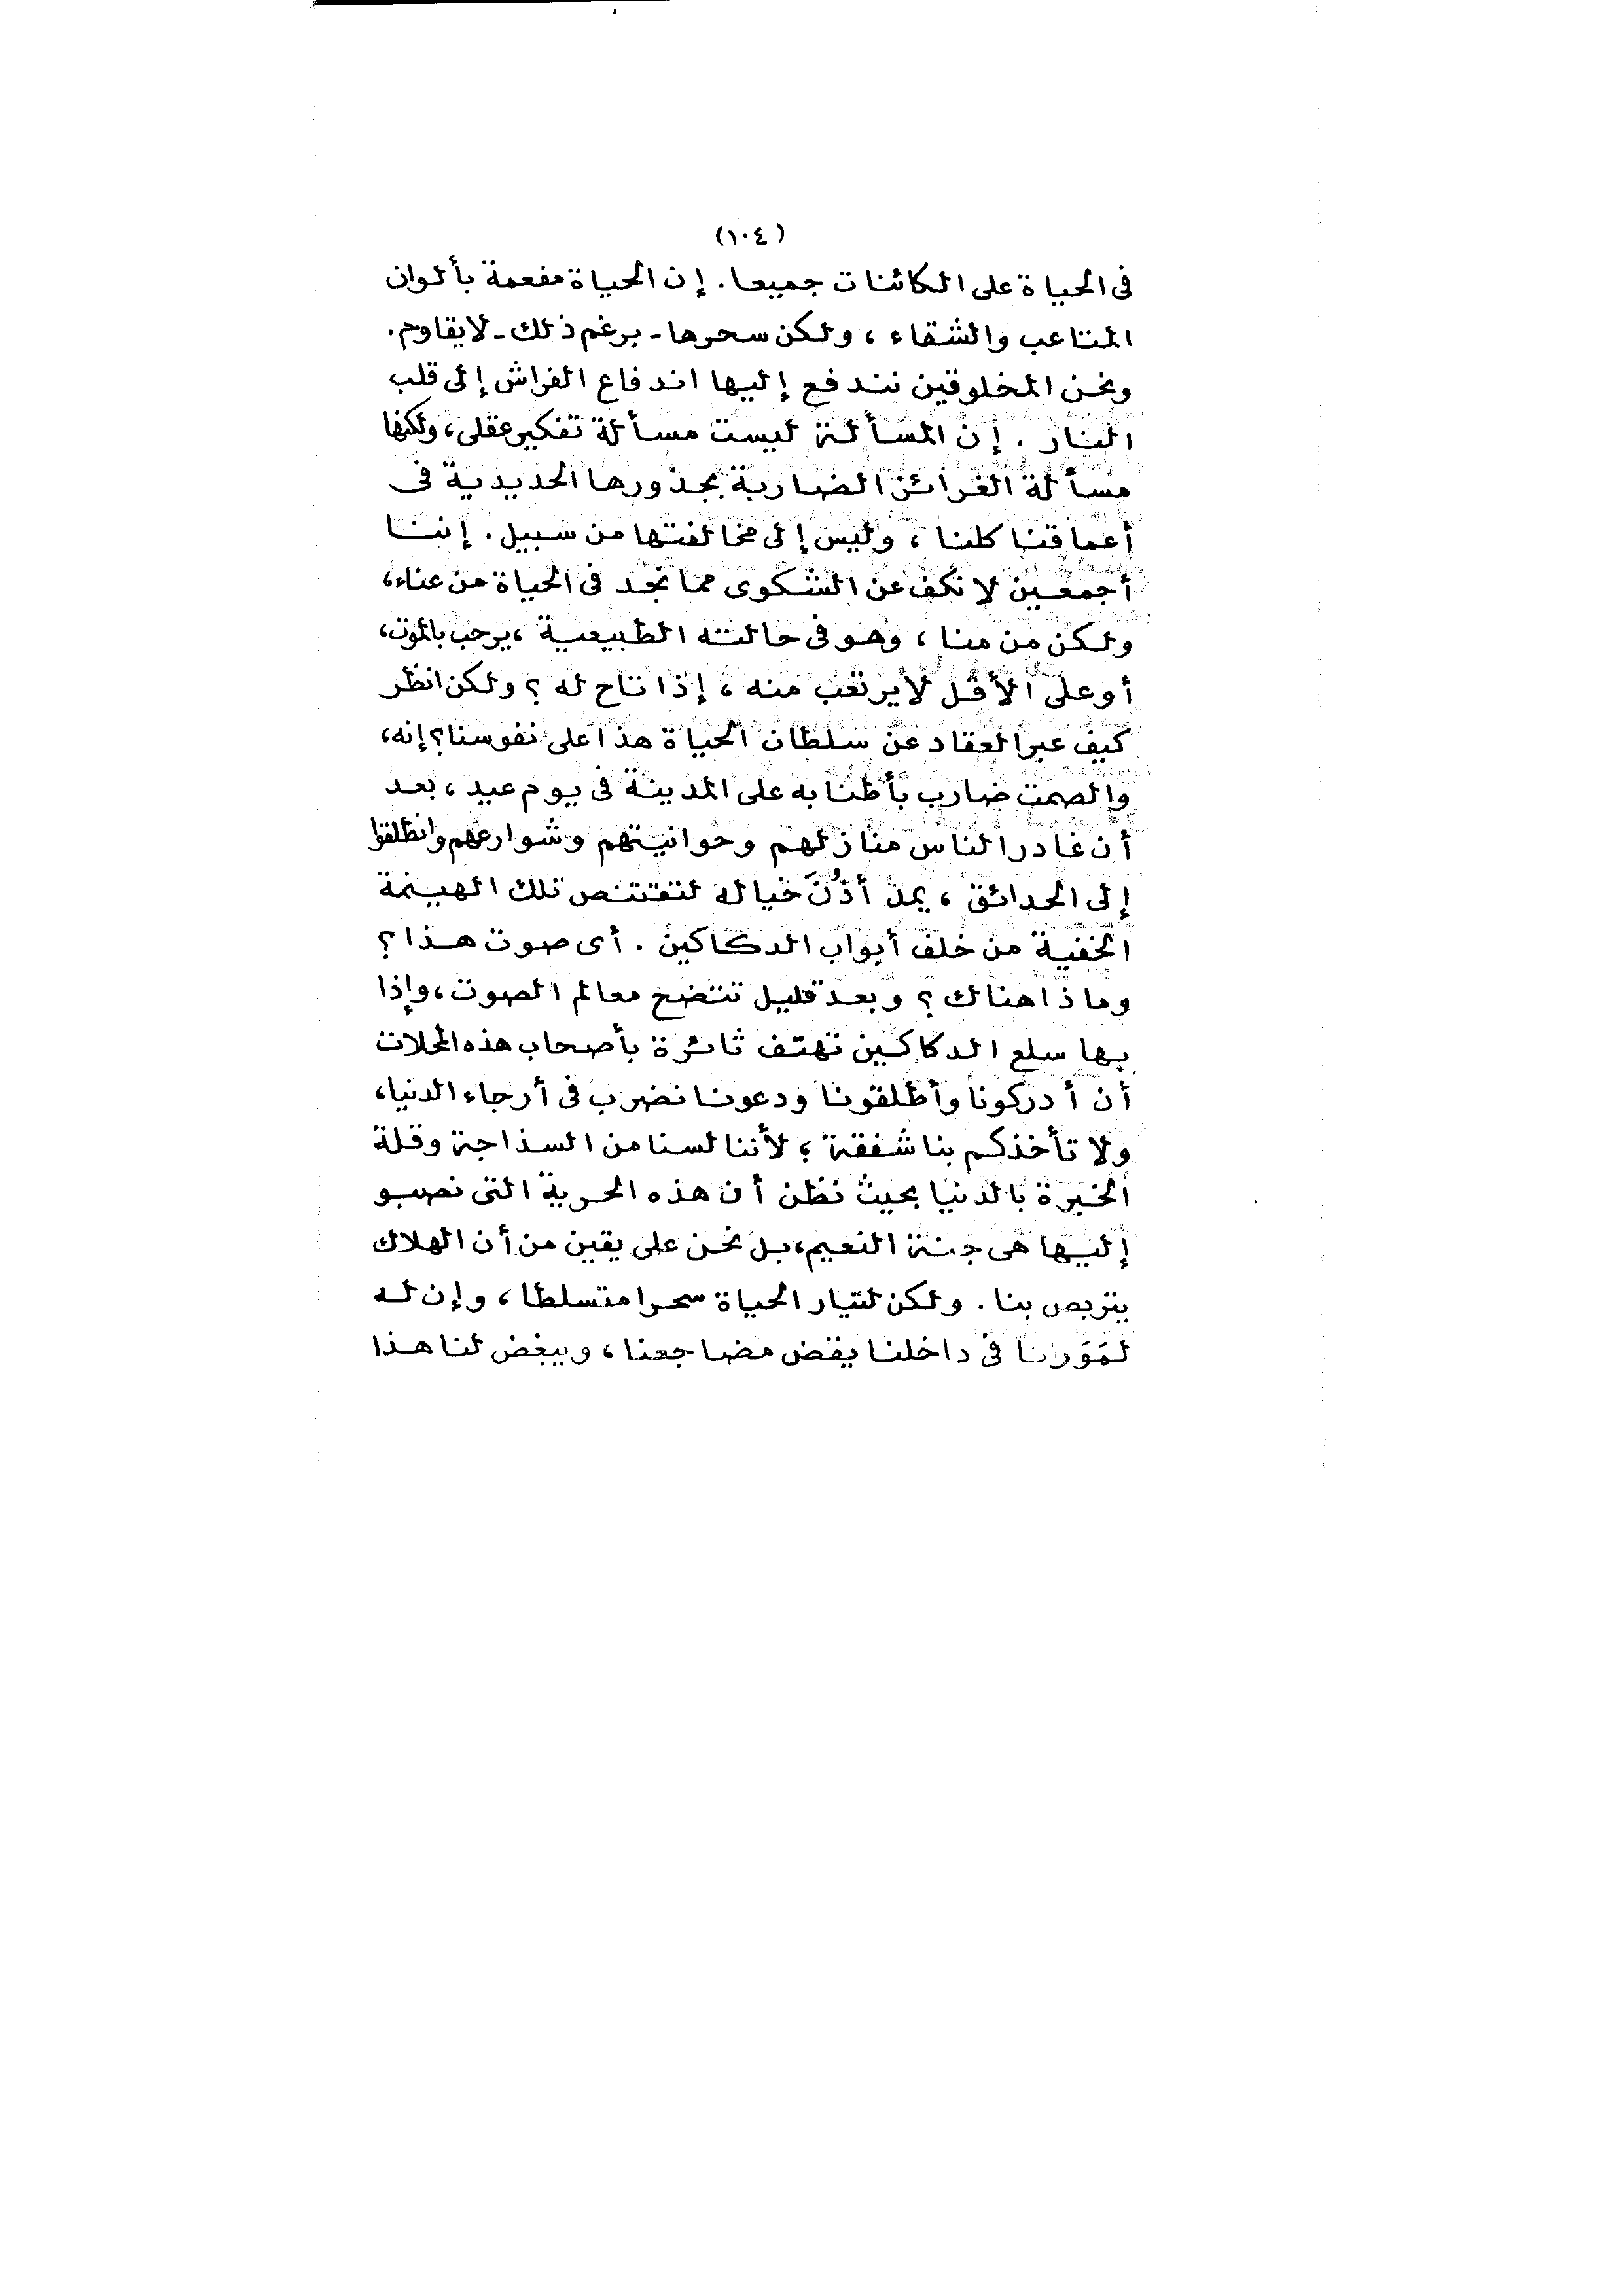 (١٠٤)
فى الحياة على الكائنات جميعا. إن الحياة مفعمة بألوان
المتاعب والشقاء ، ولكن سحرها - برغم ذلك - لا يقاوم.
ونحن المخلوقين نندفع إليها اندفاع الفراش إلى قلب
النار . إن المسألة ليست مسألة تفكير عقلى، ولكنها
مسألة الغرائز الضاربة بجذورها الحديدية فى
أعماقنا كلنا ، وليس إلى مخالفتها من سبيل . إننا
أجمعين لا نكف عن الشكوى مما نجد فى الحياة من عناء،
ولكن من منا ، وهو فى حالته الطبيعية ، يرحب بالموت،
أو على الأقل لا يرتعب منه ، إذا تاح له ؟ ولكن انظر
كيف عبر العقاد عن سلطان الحياة هذا على نفوسنا؟ إنه،
والصمت ضارب بأطنابه على المدينة فى يوم عيد ، بعد
أن غادر الناس منازلهم وحوانيتهم وشوارعهم وانطلقوا
إلى الحدائق ، يمد أذُنَ خياله لتقتنص تلك الهينمة
الخفية من خلف أبواب الدكاكين . أى صوت هذا ؟
وماذا هنالك ؟ وبعد قليل تتضح معالم الصوت، وإذا
بها سلع الدكاكين تهتف ثائرة بأصحاب هذه المحلات
أن أدركونا وأطلقونا ودعونا نضرب فى أرجاء الدنيا،
ولا تأخذكم بنا شفقة ؛ لأننا لسنا من السذاجة وقلة
الخبرة بالدنيا بحيث نظن أن هذه الحرية التى نصبو
إليها هى جنة النعيم، بل نحن على يقين من أن الهلاك
يتربص بنا . ولكن لتيار الحياة سحرا متسلطا ، وإن له
لمَوَرانا فى داخلنا يقض مضاجعنا ، ويبغض لنا هذا